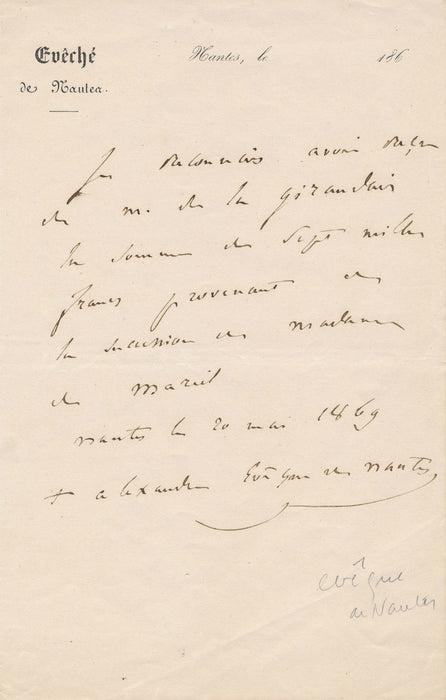 Evêché
de Nantes.
Nantes, le 186
Je reconnais avoir reçu
de m. de la Giraudais
la somme de Sept mille
francs provenant de
la succession de madame
de Mareil
nantes le 20 mai 1869
+ alexandre Evêque de nantes
evêque
de Nantes